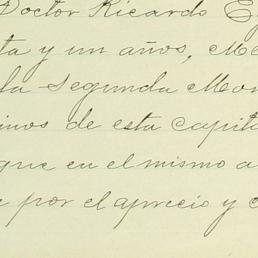 Doctor Ricardo E
ta y un años, Me
la Segunda Mon
inos de esta capit
que en el mismo a
e por el aprecio y c